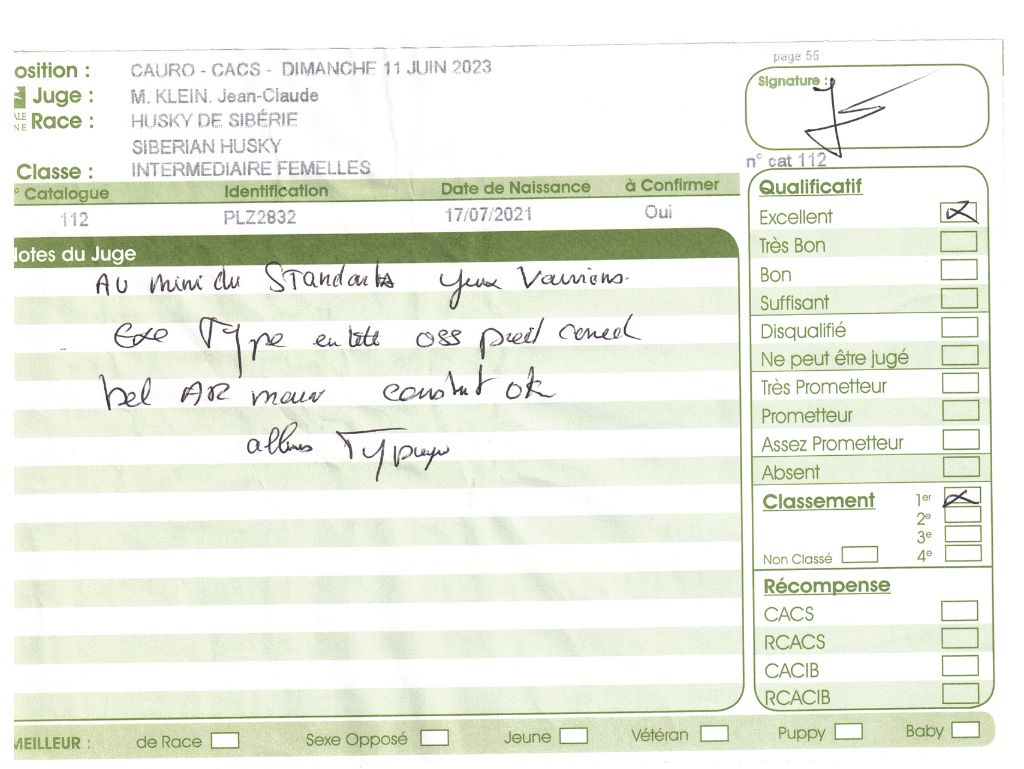 osition : CAURO - CACS - DIMANCHE 11 JUIN 2023
page 55
Juge : M. KLEIN. Jean-Claude
Signature :
Race : HUSKY DE SIBÉRIE
SIBERIAN HUSKY
Classe : INTERMEDIAIRE FEMELLES
n° cat 112
° Catalogue Identification Date de Naissance à Confirmer
112 PLZ2832 17/07/2021 Oui
otes du Juge
Au mini du Standard yeux
Exc Type en tête oss pied
bel AR main ok
allures
Qualificatif
Excellent
Très Bon
Bon
Suffisant
Disqualifié
Ne peut être jugé
Très Prometteur
Prometteur
Assez Prometteur
Absent
Classement 1er
2e
3e
Non Classé 4e
Récompense
CACS
RCACS
CACIB
RCACIB
MEILLEUR : de Race Sexe Opposé Jeune Vétéran Puppy Baby